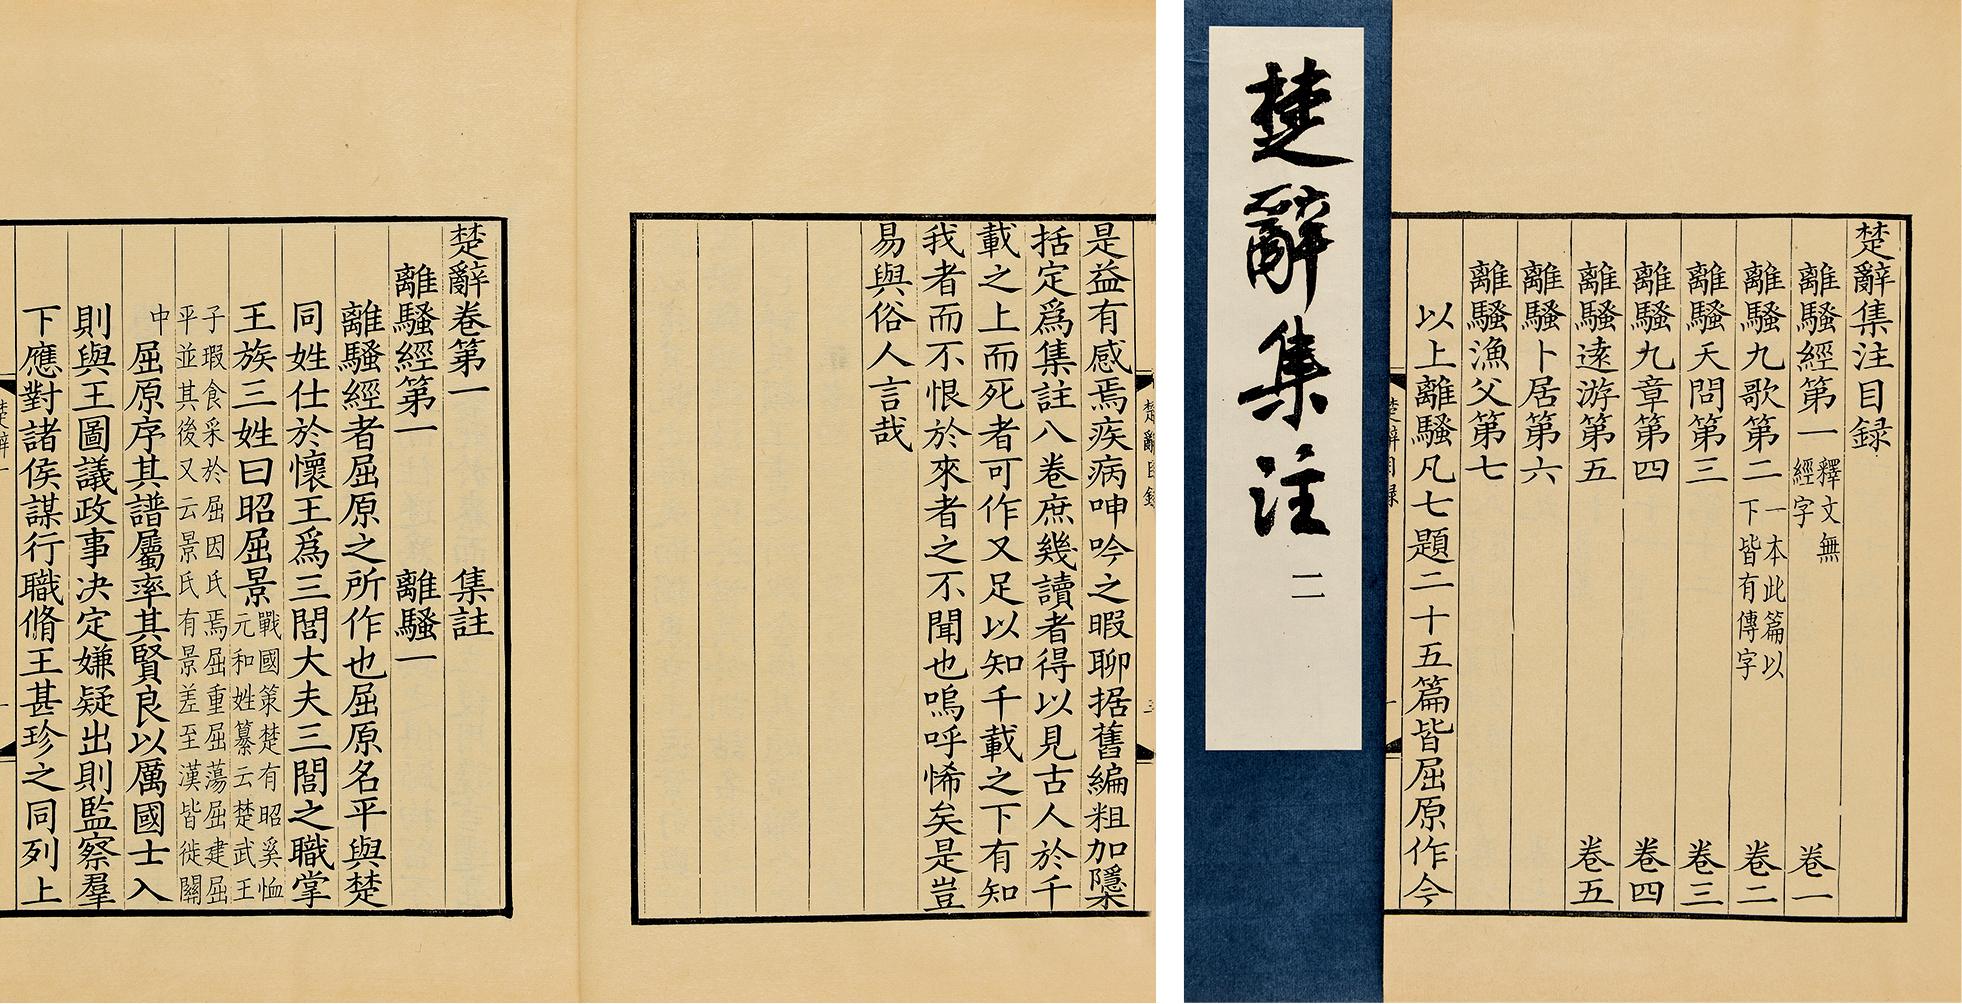 楚辭集注目録
離騷經第一 釋文無經字 卷一
離騷九歌第二 一本此篇以下皆有傳字 卷二
離騷天問第三 卷三
離騷九章第四 卷四
離騷逺游第五 卷五
離騷卜居第六
離騷漁父第七
以上離騷凡七題二十五篇皆屈原作今
楚辭集注 二
是益有感焉疾病呻吟之暇聊据舊編粗加隱
括定爲集註八卷庶幾讀者得以見古人於千
載之上而死者可作又足以知千載之下有知
我者而不恨於來者之不聞也嗚呼悕矣是豈
易與俗人言哉
楚辭卷第一 集註
離騷經第一 離騷一
離騷經者屈原之所作也屈原名平與楚
同姓仕於懷王爲三閭大夫三閭之職掌
王族三姓曰昭屈景 戰國策楚有昭奚恤元和姓纂云楚武王
子瑕食采於屈因氏焉屈重屈蕩屈建屈
平並其後又云景氏有景差至漢皆徙關
中 屈原序其譜屬率其賢良以厲國士入
則與王圖議政事決定嫌疑出則監察羣
下應對諸侯謀行職脩王甚珍之同列上